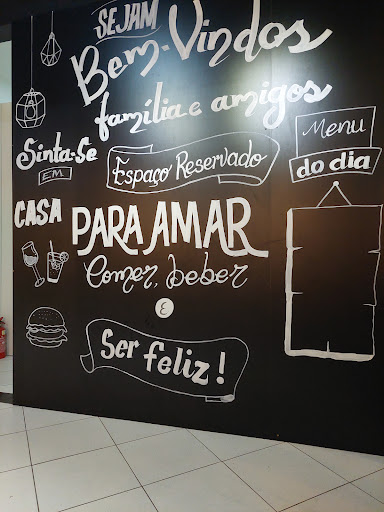 SEJAM
Bem-Vindos
família e amigos
Sinta-Se
EM
CASA
Espaço Reservado
PARA AMAR
Comer, beber
E
Ser feliz!
Menu
do dia